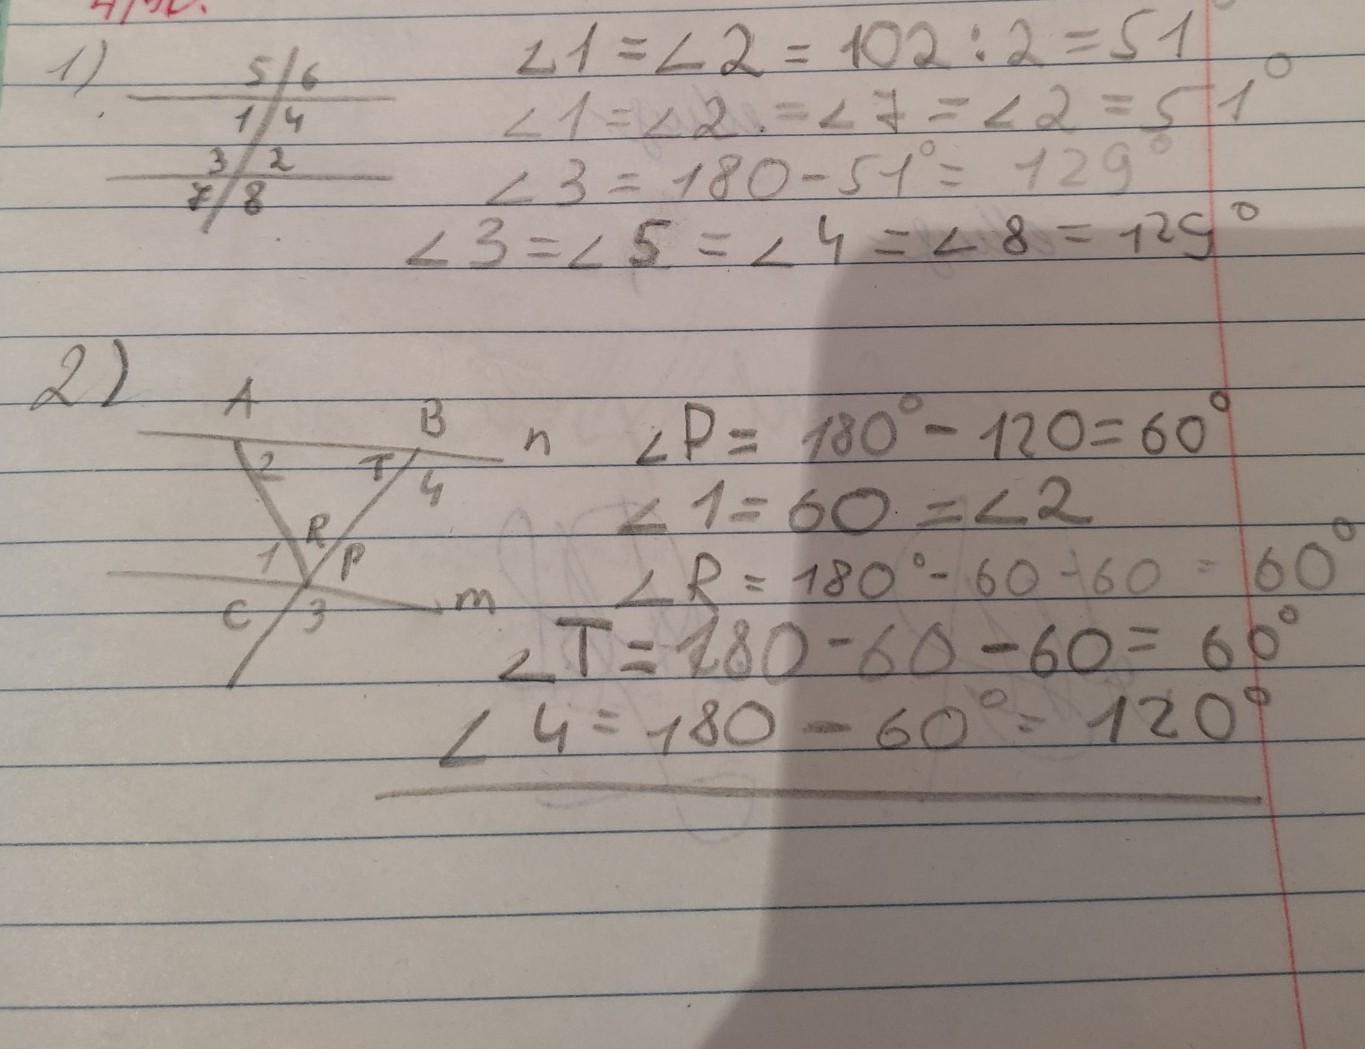 1)
5 6
1 4
3 2
7 8
∠1 = ∠2 = 102 : 2 = 51°
∠1 = ∠2 . = ∠7 = ∠2 = 51°
∠3 = 180 - 51° = 129°
∠3 = ∠5 = ∠4 = ∠8 = 129°
2)
A B n
2 T 4
1 R P
C 3 m
∠P = 180° - 120 = 60°
∠1 = 60 = ∠2
∠R = 180° - 60 - 60 = 60°
∠T = 180 - 60 - 60 = 60°
∠4 = 180 - 60° = 120°